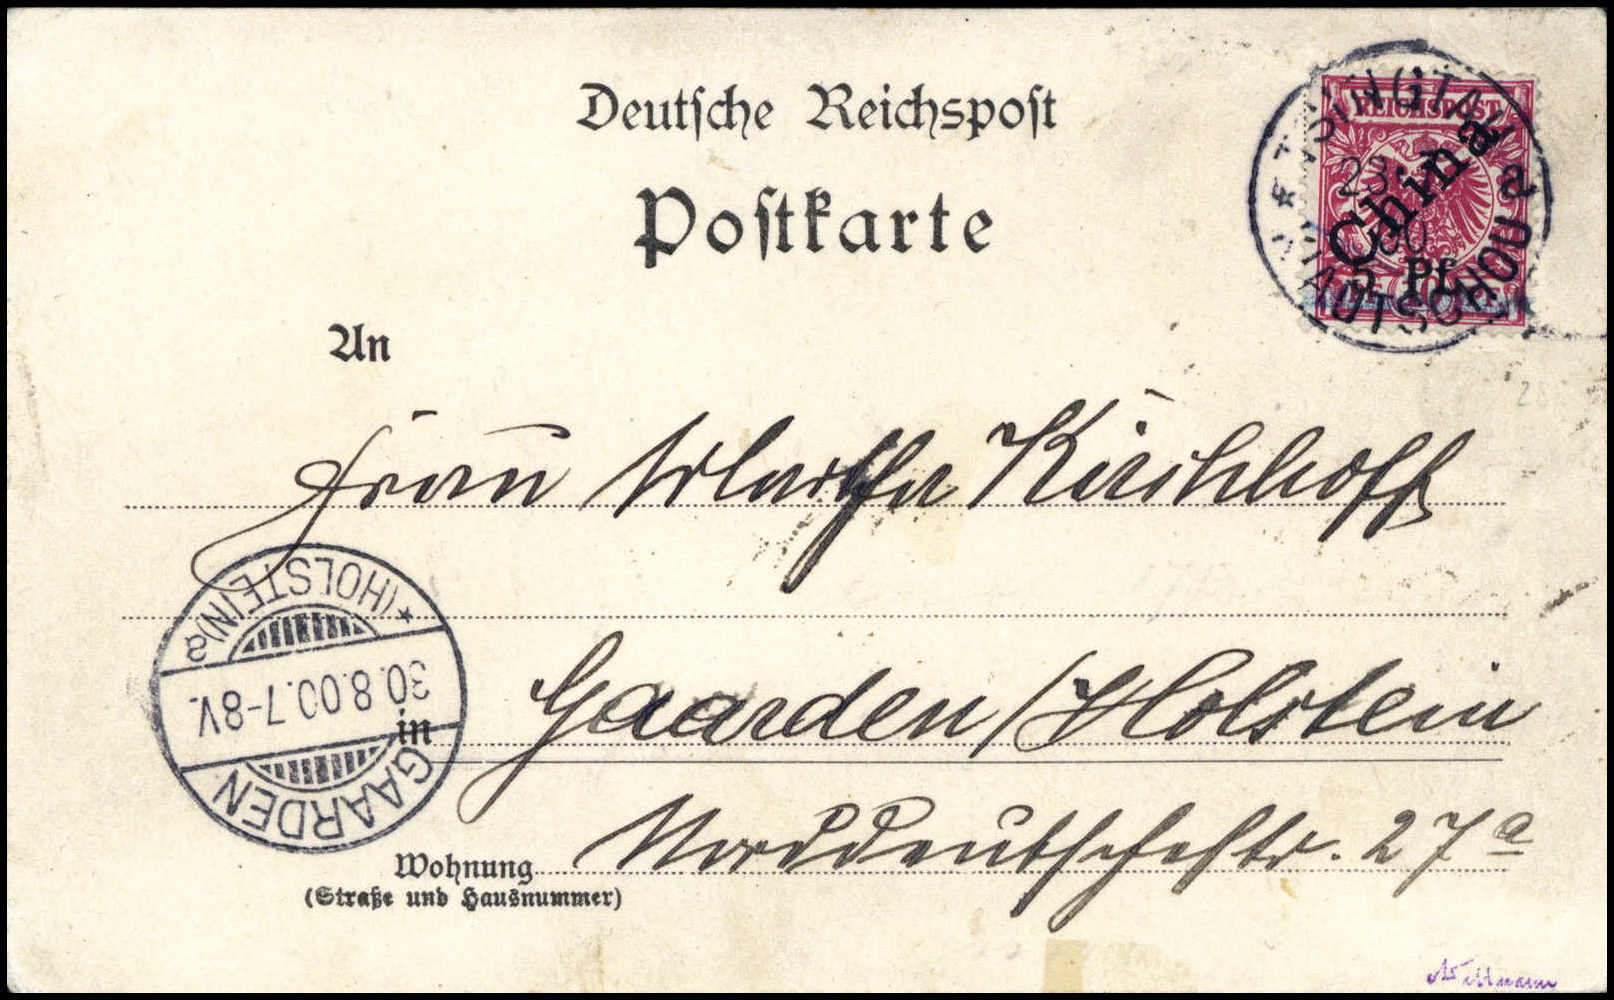 Deutsche Reichspost
Postkarte
REICHSPOST
China
5 Pf.
TSINGTAU a
KIAUTSCHOU
An
Frau Martha Kirchhoff
(HOLSTEIN) a
30.8.00.7-8V.
GAARDEN
in Gaarden/Holstein
Wohnung Norddeutschestr. 27a
(Straße und Hausnummer)